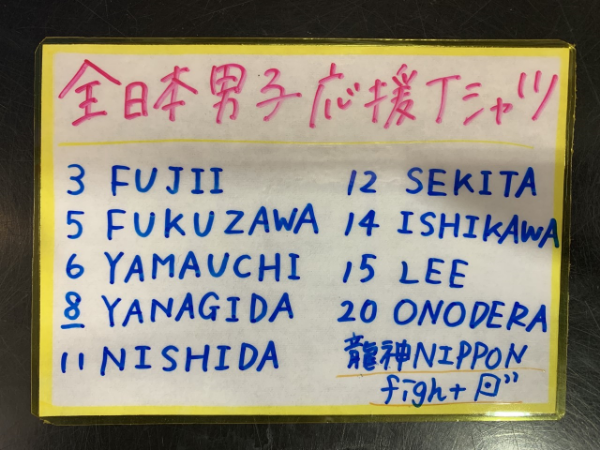 全日本男子応援Tシャツ
3 FUJII
5 FUKUZAWA
6 YAMAUCHI
8 YANAGIDA
11 NISHIDA
12 SEKITA
14 ISHIKAWA
15 LEE
20 ONODERA
龍神NIPPON
fight